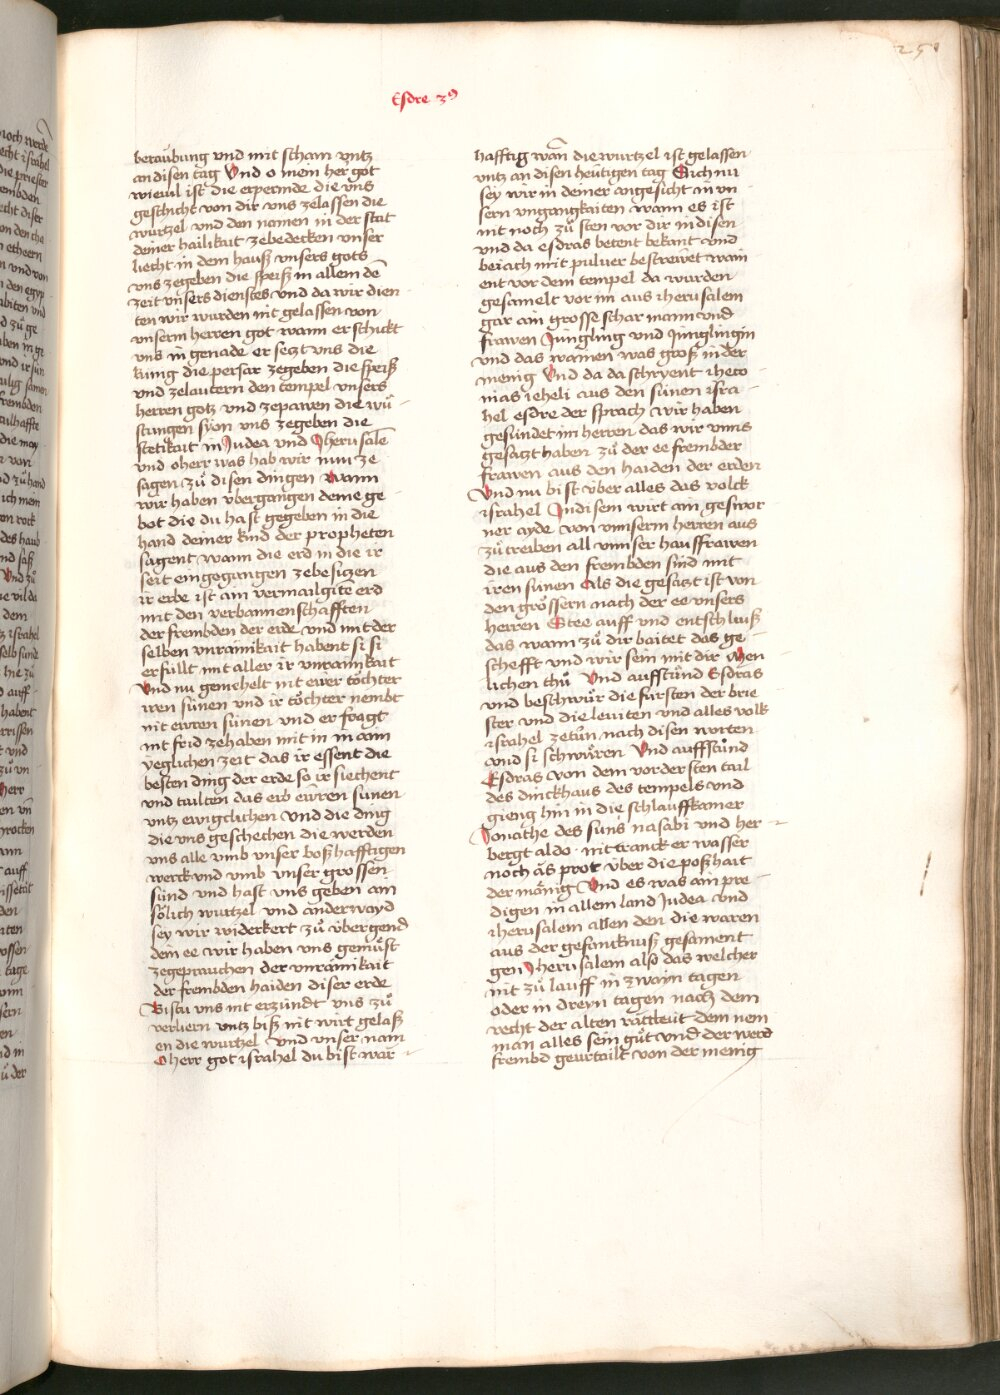 251
Esdre 3⁹
beraubung vnd mit scham vntz
an disen tag Vnd o mein her got
wieuil ist die erpermde die vns
geschicht von dir vns zelassen die
wurtzel vnd den namen in der stat
deiner hailikait zebedecken vnser
liecht in dem hauß vnsers gots
vns zegeben die speiß in allem dē
zeit vnsers dienstes vnd da wir dien
ten wir wurden nit gelassen von
vnserm herren got wann er schickt
vns in genade er seczt vns die
kung die persar zegeben die speiß
vnd zelautern den tempel vnsers
herren gotz vnd zepawen die wů
stungen syon vns zegeben die
stetikait in Judea vnd Jherusalē
vnd o herr was hab wir nun ze
sagen zů disen dingen wann
wir haben vbergangen deine ge
bot die du hast gegeben in die
hand deiner kind der propheten
sagent wann die erd in die ir
seit eingegangen zebesiczen
ir erbe ist ain vermailgite erd
mit den verbannenschafften
der frembden der erde vnd mit der
selben vnrainikait habent si si
erfüllt mit aller ir vnrainikait
Vnd nu gemehelt nit ewer tochter
iren sünen vnd ir töchter nembt
nit ewren sünen vnd er fragt
nit frid zehaben mit in in ainn
yeglichen zeit das ir essent die
besten ding der erde so ir siechent
vnd tailten das erb eẅren sunen
vntz ewigclichen Vnd die ding
die vns geschechen die werden
vns alle vmb vnser boßhafftigen
werck vnd vmb vnser grossen
sünd vnd hast vns geben ain
sölich wurtzel vnd anderwayd
sey wir widerkert zů vbergend
dein ee wir haben vns gemüst
zegeprauchen der vnrainikait
der frembden haiden diser erde
Bistu vns nit erzündt vns zů
verliern vntz biß nit wirt gelaß
en die wurtzel vnd vnser nam
O herr got israhel du bist war
hafftig wañ die wurtzel ist gelassen
vntz an disen heütigen tag Sich nu
sey wir in deiner angesicht in vn
sern vngangkaiten wann es ist
nit noch zů sten vor dir in disen
vnd da esdras betent bekant vnd
beiach mit puluer bestrewet wain
ent vor dem tempel da wurden
gesamelt vor im aus iherusalem
gar ain grosse schar mann vnd
frawen Jungling vnd Junglingin
vnd das wainen was groß in der
menig Vnd da da schryent iheco
nias ieheli aus den sünen isra
hel esdre der sprach wir haben
gesündet im herren das wir vnns
gesaczt haben zů der ee frembder
frawen aus den haiden der erden
Vnd nu bist über alles das volck
israhel In disem wirt ain geswor
ner ayde von vnnserm herren aus
zů treiben all vnnser hauffrawen
die aus den frembden sind mit
iren sünen Als die gesaczt ist von
den grössern nach der ee vnsers
herren Stee auff vnd entschluß
das wann zů dir baitet das ge
schefft vnd wir sein mit dir Men
lichen thů Vnd auffstünd Esdras
vnd beschwůr die fürsten der brie
ster vnd die leuiten vnd alles volk
israhel zetůn nach disen worten
vnd si schwůren Vnd auffstůnd
Esdras von dem vordersten tail
des dinckhaus des tempels vnd
gieng hin in die schlauffkamer
Jonathe des suns nasabi vnd her
bergt aldo nit tranck er wasser
noch äs prot über die poßhait
der mänig Vnd es was ain pre
digen in allem land Judea vnd
iherusalem allen den die waren
aus der gefancknuß gesament
gen Jherusalem also das welcher
nit zů lauff in zwayn tagen
oder in dreyn tagen nach dem
recht der alten rättleüt dem nem
man alles sein gůt vnd der werd
frembd geurtailt von der menig